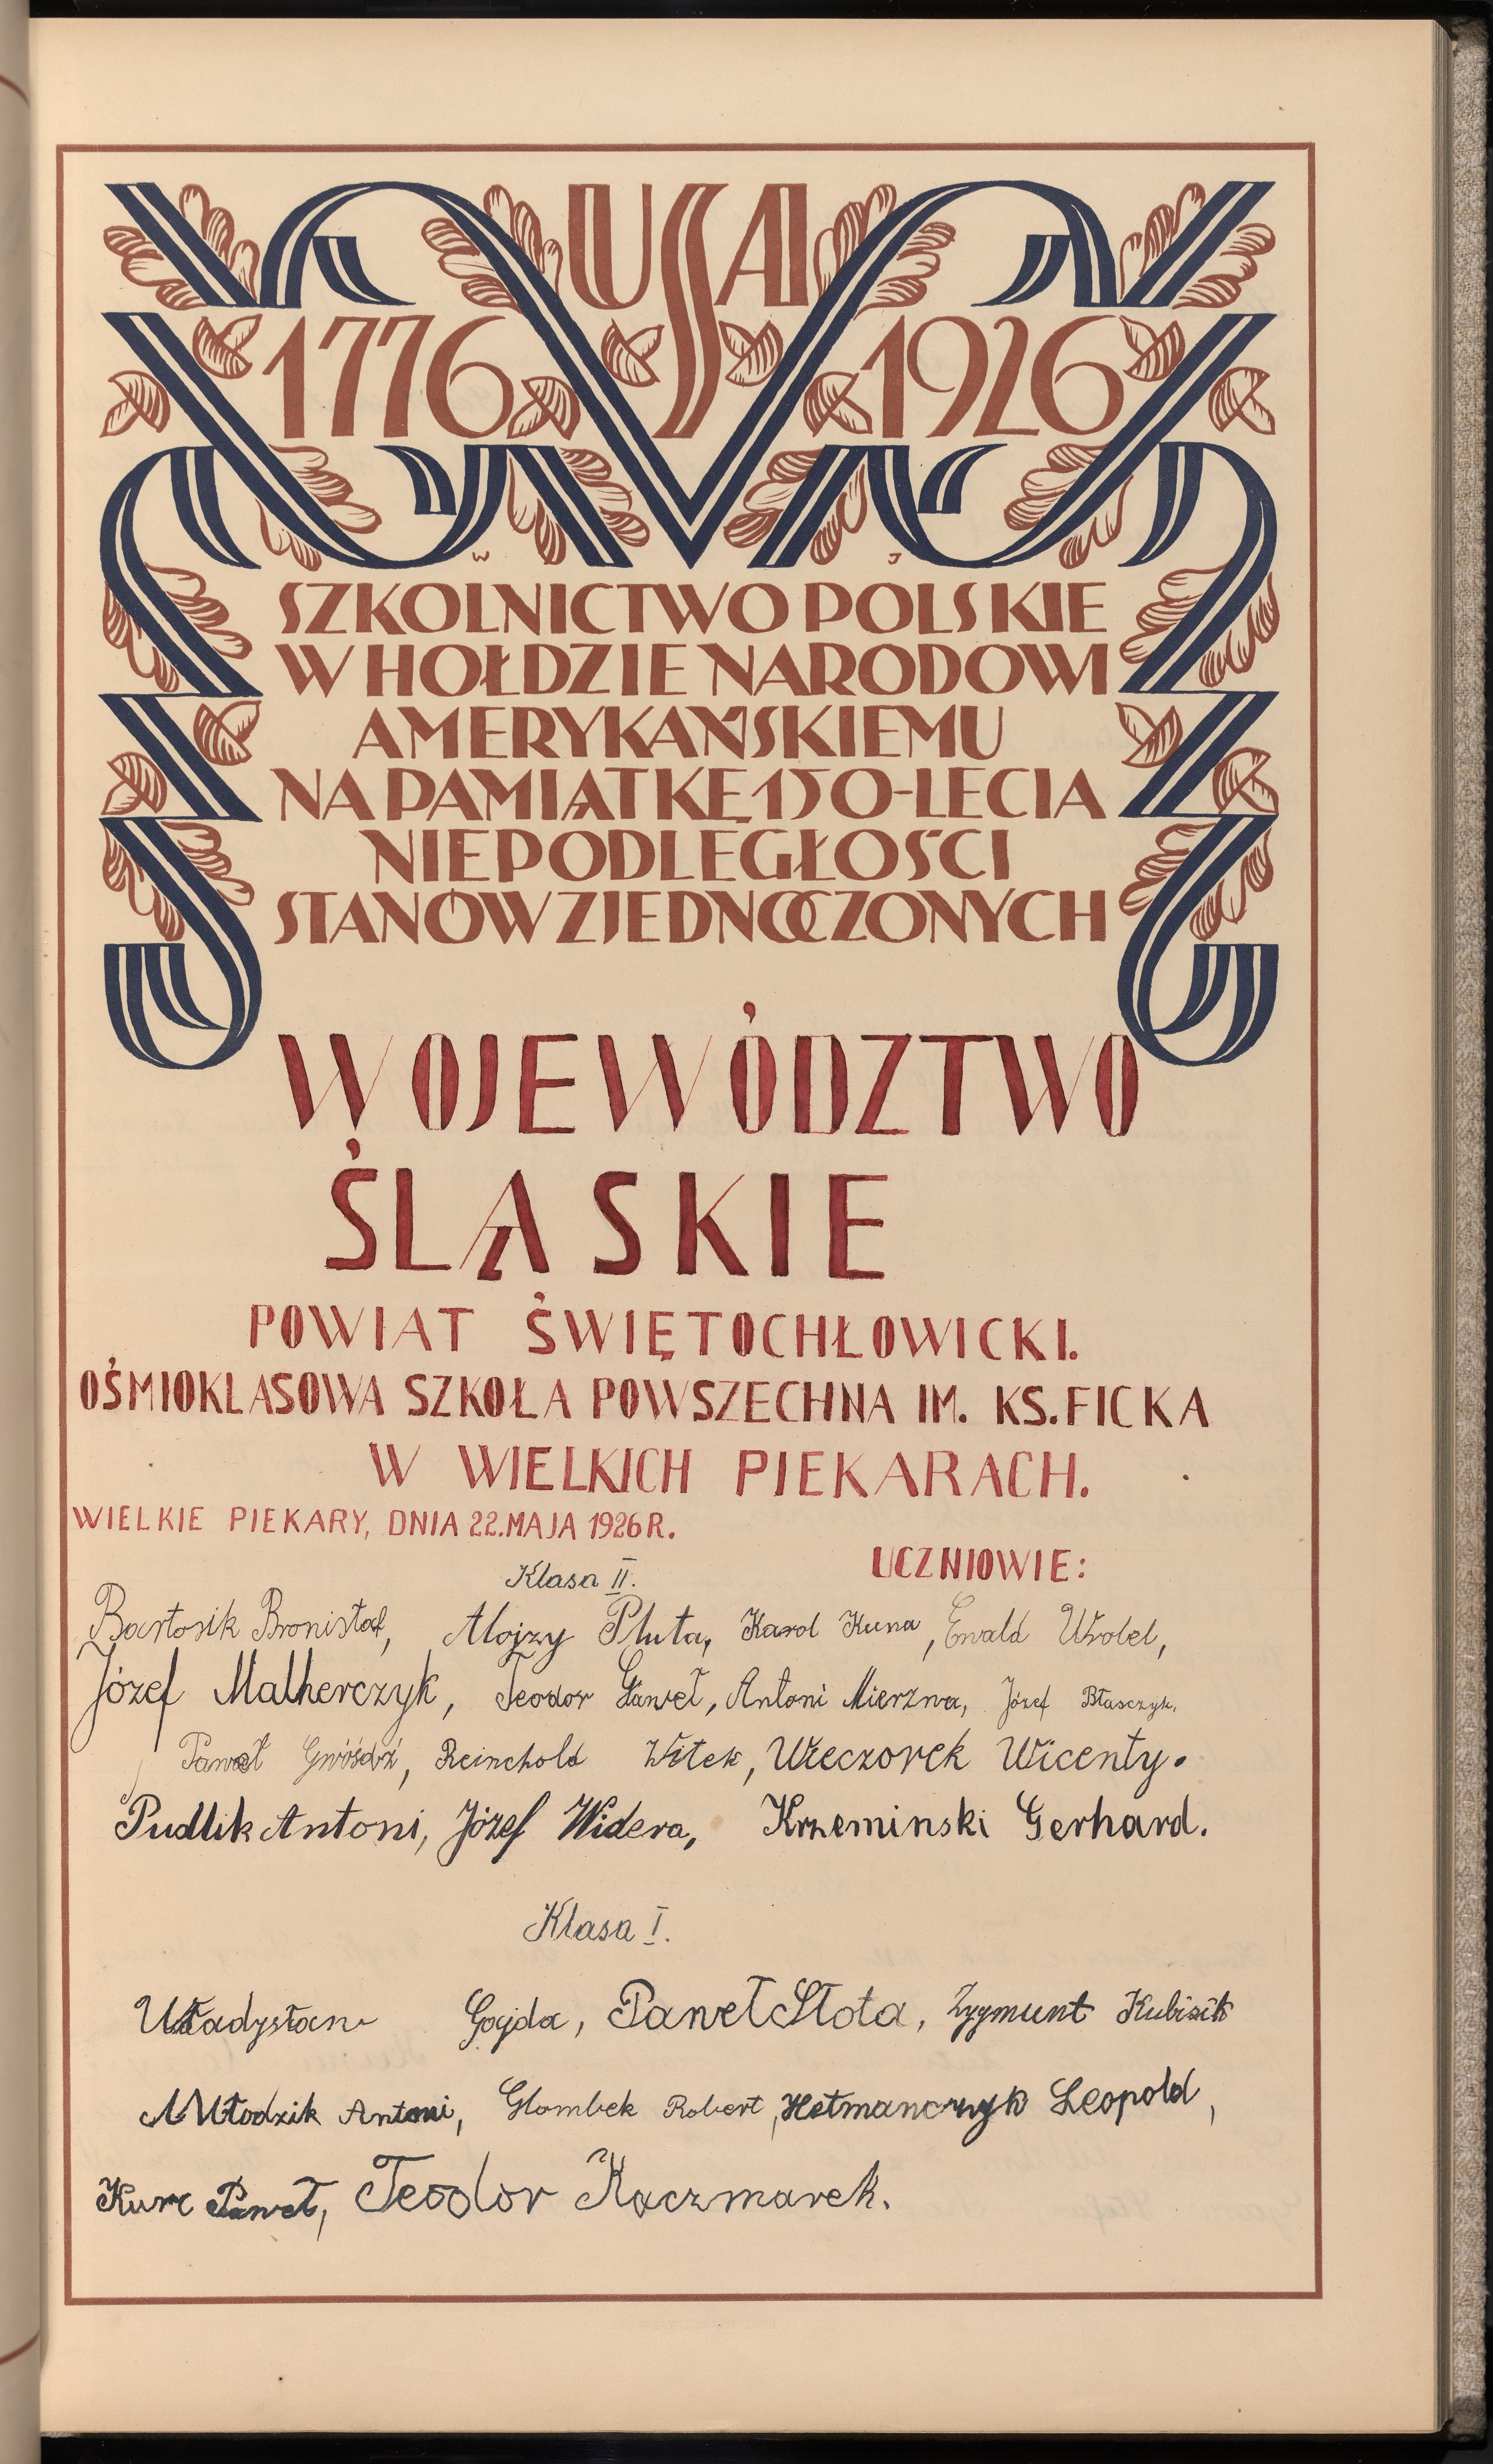 USA
1776 1926
W J
SZKOLNICTWO POLSKIE
W HOŁDZIE NARODOWI
AMERYKAŃSKIEMU
NA PAMIĄTKĘ 150-LECIA
NIEPODLEGŁOŚCI
STANÓW ZJEDNOCZONYCH
WOJEWÓDZTWO
ŚLĄSKIE
POWIAT ŚWIĘTOCHŁOWICKI.
OŚMIOKLASOWA SZKOŁA POWSZECHNA IM. KS. FICKA
W WIELKICH PIEKARACH.
WIELKIE PIEKARY, DNIA 22. MAJA 1926 R.
UCZNIOWIE:
Klasa II.
Bartosik Bronisław, Alojzy Pluta, Karol Kuna, Ewald Wrobel,
Józef Malherczyk, Teodor Gaweł, Antoni Mierzwa, Józef Błasczyk,
Paweł Gwóśdź, Reinchold Witek, Wieczorek Wicenty.
Pudlik Antoni, Józef Widera, Krzeminski Gerhard.
Klasa I.
Władysław Gajda, Paweł Słota, Zygmunt Kubisik
Młodzik Antoni, Glombek Robert, Hetmanczyk Leopold,
Kurc Paweł, Teodor Kaczmarek.